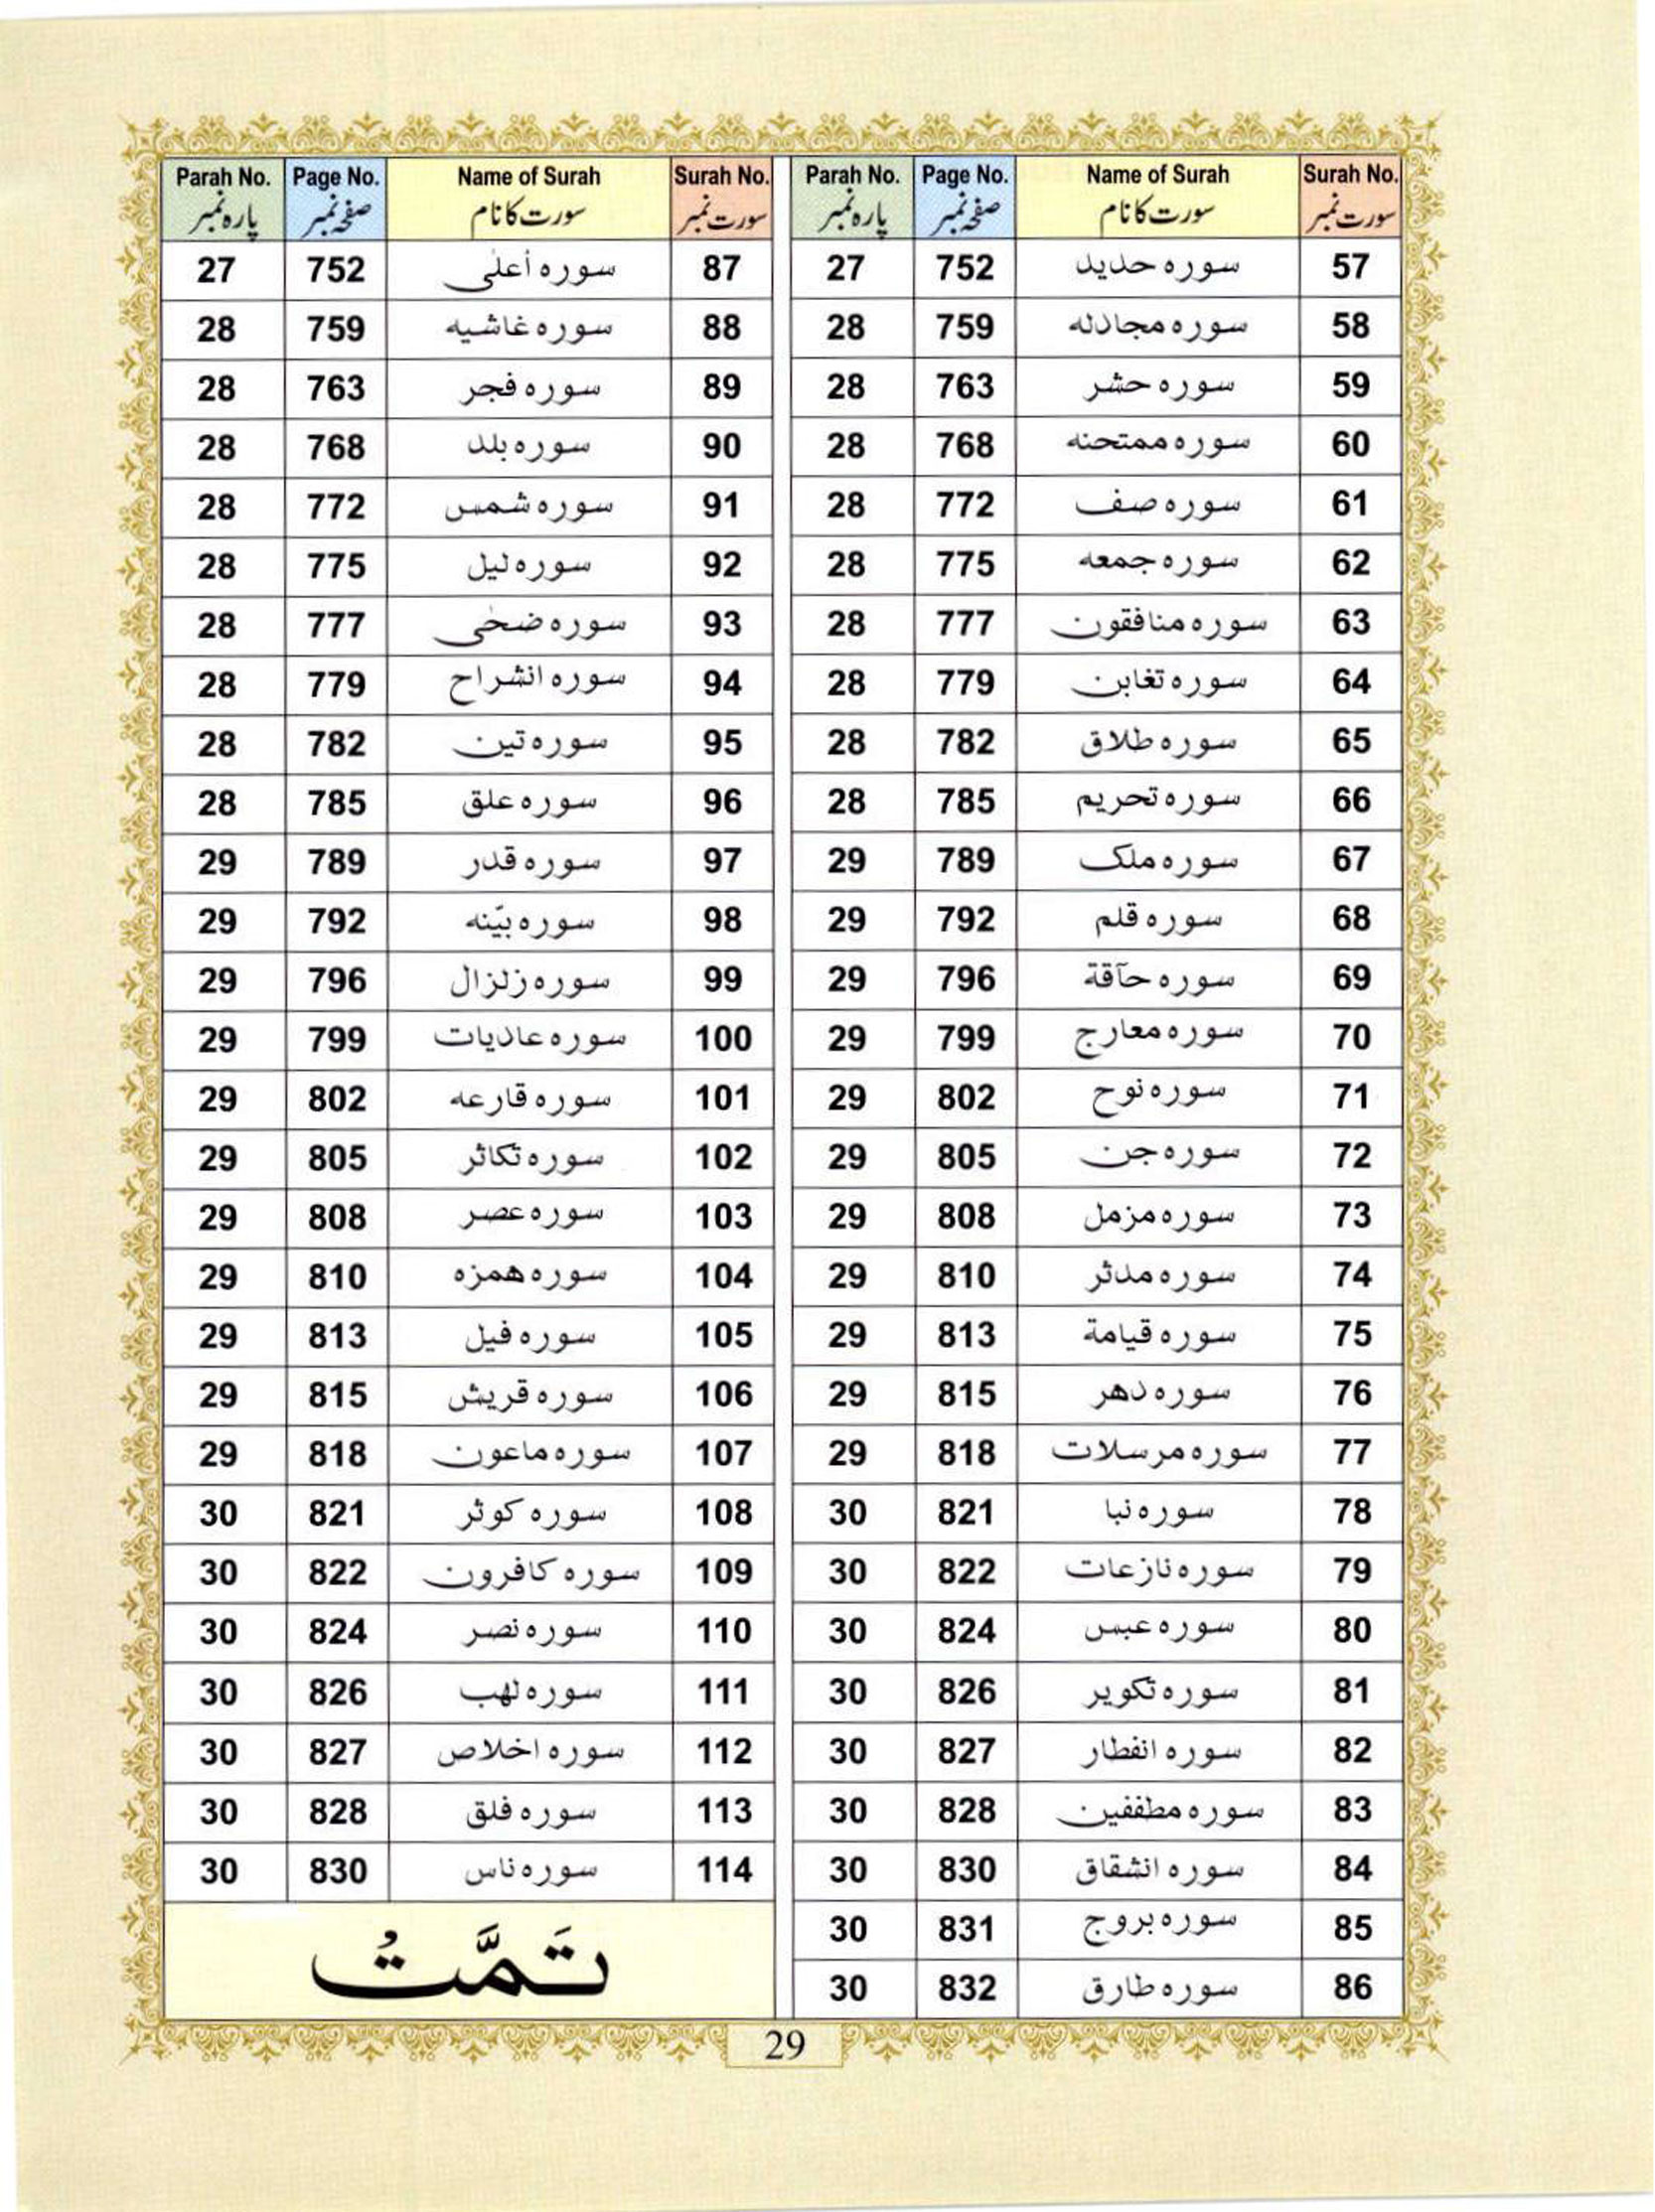 Surah No. Name of Surah Page No. Parah No.
سورت نمبر سورت کا نام صفحہ نمبر پارہ نمبر
57 سورہ حدید 752 27
58 سورہ مجادلہ 759 28
59 سورہ حشر 763 28
60 سورہ ممتحنہ 768 28
61 سورہ صف 772 28
62 سورہ جمعہ 775 28
63 سورہ منافقون 777 28
64 سورہ تغابن 779 28
65 سورہ طلاق 782 28
66 سورہ تحریم 785 28
67 سورہ ملک 789 29
68 سورہ قلم 792 29
69 سورہ حآقة 796 29
70 سورہ معارج 799 29
71 سورہ نوح 802 29
72 سورہ جن 805 29
73 سورہ مزمل 808 29
74 سورہ مدثر 810 29
75 سورہ قیامة 813 29
76 سورہ دھر 815 29
77 سورہ مرسلات 818 29
78 سورہ نبا 821 30
79 سورہ نازعات 822 30
80 سورہ عبس 824 30
81 سورہ تکویر 826 30
82 سورہ انفطار 827 30
83 سورہ مطففین 828 30
84 سورہ انشقاق 830 30
85 سورہ بروج 831 30
86 سورہ طارق 832 30
Surah No. Name of Surah Page No. Parah No.
سورت نمبر سورت کا نام صفحہ نمبر پارہ نمبر
87 سورہ أعلٰی 752 27
88 سورہ غاشیہ 759 28
89 سورہ فجر 763 28
90 سورہ بلد 768 28
91 سورہ شمس 772 28
92 سورہ لیل 775 28
93 سورہ ضحٰی 777 28
94 سورہ انشراح 779 28
95 سورہ تین 782 28
96 سورہ علق 785 28
97 سورہ قدر 789 29
98 سورہ بیّنہ 792 29
99 سورہ زلزال 796 29
100 سورہ عادیات 799 29
101 سورہ قارعہ 802 29
102 سورہ تکاثر 805 29
103 سورہ عصر 808 29
104 سورہ ھمزہ 810 29
105 سورہ فیل 813 29
106 سورہ قریش 815 29
107 سورہ ماعون 818 29
108 سورہ کوثر 821 30
109 سورہ کافرون 822 30
110 سورہ نصر 824 30
111 سورہ لھب 826 30
112 سورہ اخلاص 827 30
113 سورہ فلق 828 30
114 سورہ ناس 830 30
تَمَّتُ
29